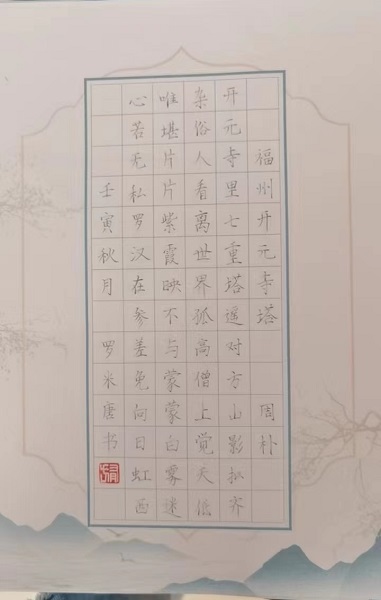 福州开元寺塔 周朴
开元寺里七重塔遥对方山影拟齐
杂俗人看离世界孤高僧上觉天低
唯堪片片紫霞映不与蒙蒙白雾迷
心若无私罗汉在参差免向日虹西
壬寅秋月 罗米唐书